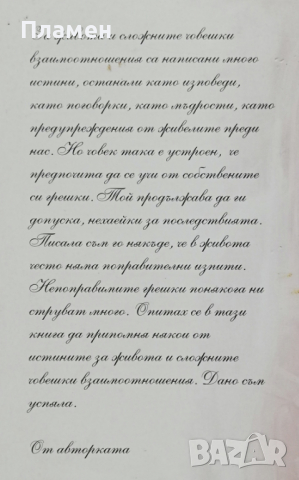 Пламен
За живота и сложните човешки
взаимоотношения са написани много
истини, останали като изповеди,
като поговорки, като мъдрости, като
предупреждения от живелите преди
нас. Но човек така е устроен, че
предпочита да се учи от собствените
си грешки. Той продължава да ги
допуска, нехаейки за последствията.
Писала съм го някъде, че в живота
често няма поправителни изпити.
Непоправимите грешки понякога ни
струват много. Опитах се в тази
книга да припомня някои от
истините за живота и сложните
човешки взаимоотношения. Дано съм
успяла.
От авторката
BAZAR